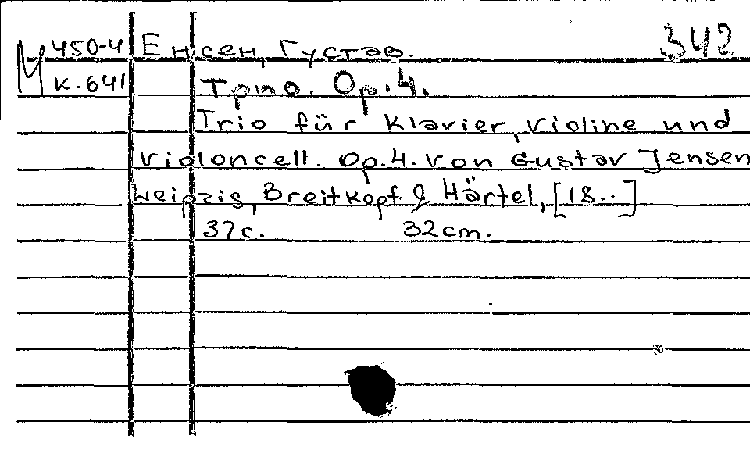 М 450-4 Енсен, Густав. 342
к.641 Трио. Op.4.
Trio für Klavier, Violine und
Violoncell. Op.4. von Gustav Jensen
Leipzig, Breitkopf & Härtel, [18..]
37с. 32cm.